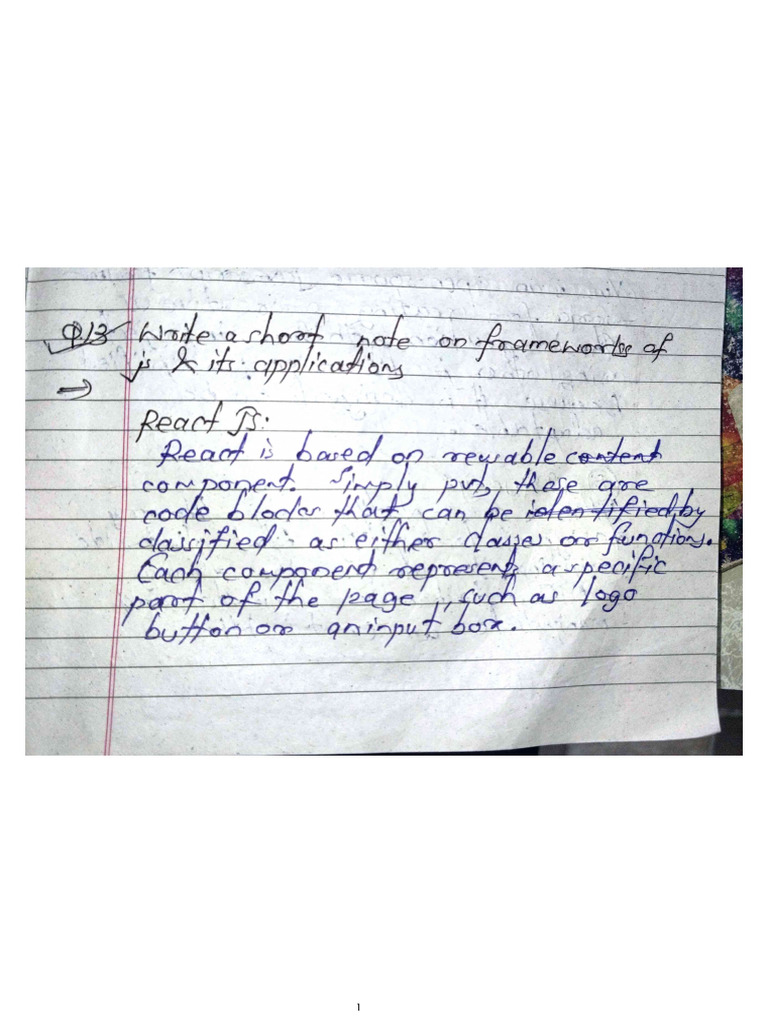 Q13 Write a short note on frameworks of
js & its applications
→
React JS:
React is based on reusable content
component. Simply put, these are
code blocks that can be identified by
classified as either classes or functions.
Each component represents a specific
part of the page, such as logo
button or an input box.
1